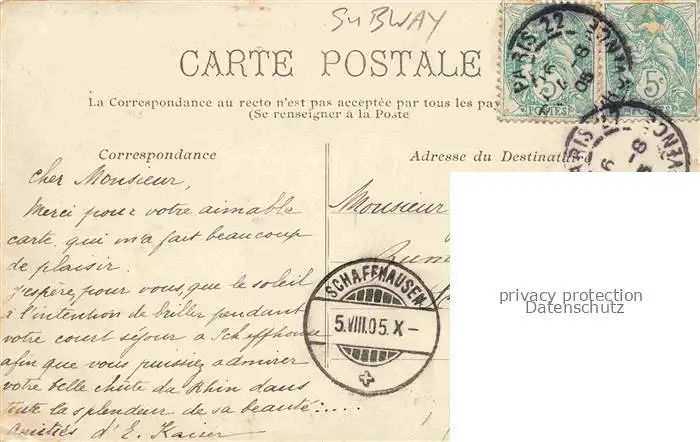 SUBWAY
CARTE POSTALE
La Correspondance au recto n'est pas acceptée par tous les pay
(Se renseigner à la Poste
Correspondance
Adresse du Destinataire
PARIS 22
5c
5c
POSTES
PARIS 22
Cher Monsieur,
Merci pour votre aimable
carte, qui m'a fait beaucoup
de plaisir.
J'espère, pour vous, que le soleil
à l'intention de briller pendant
votre court séjour à Scheffhouse
afin que vous puissiez admirer
votre belle chûte du Rhin dans
toute la splendeur de sa beauté.....
Amitiés d'E. Kaiser
Monsieur
SCHAFFHAUSEN
5.VIII.05.X–
privacy protection
Datenschutz